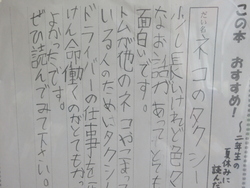 この本 おすすめ!
〜二年生の
夏休みに
読んだ
だいめい
ネコのタクシー
少し長いけれど色々
なお話があってとても
面白いです。
トムが他のネコやこまって
いる人のためにタクシー
ドライバーの仕事を
けん命働くのがとてもか
よかったです。
ぜひ読んでみて下さい。